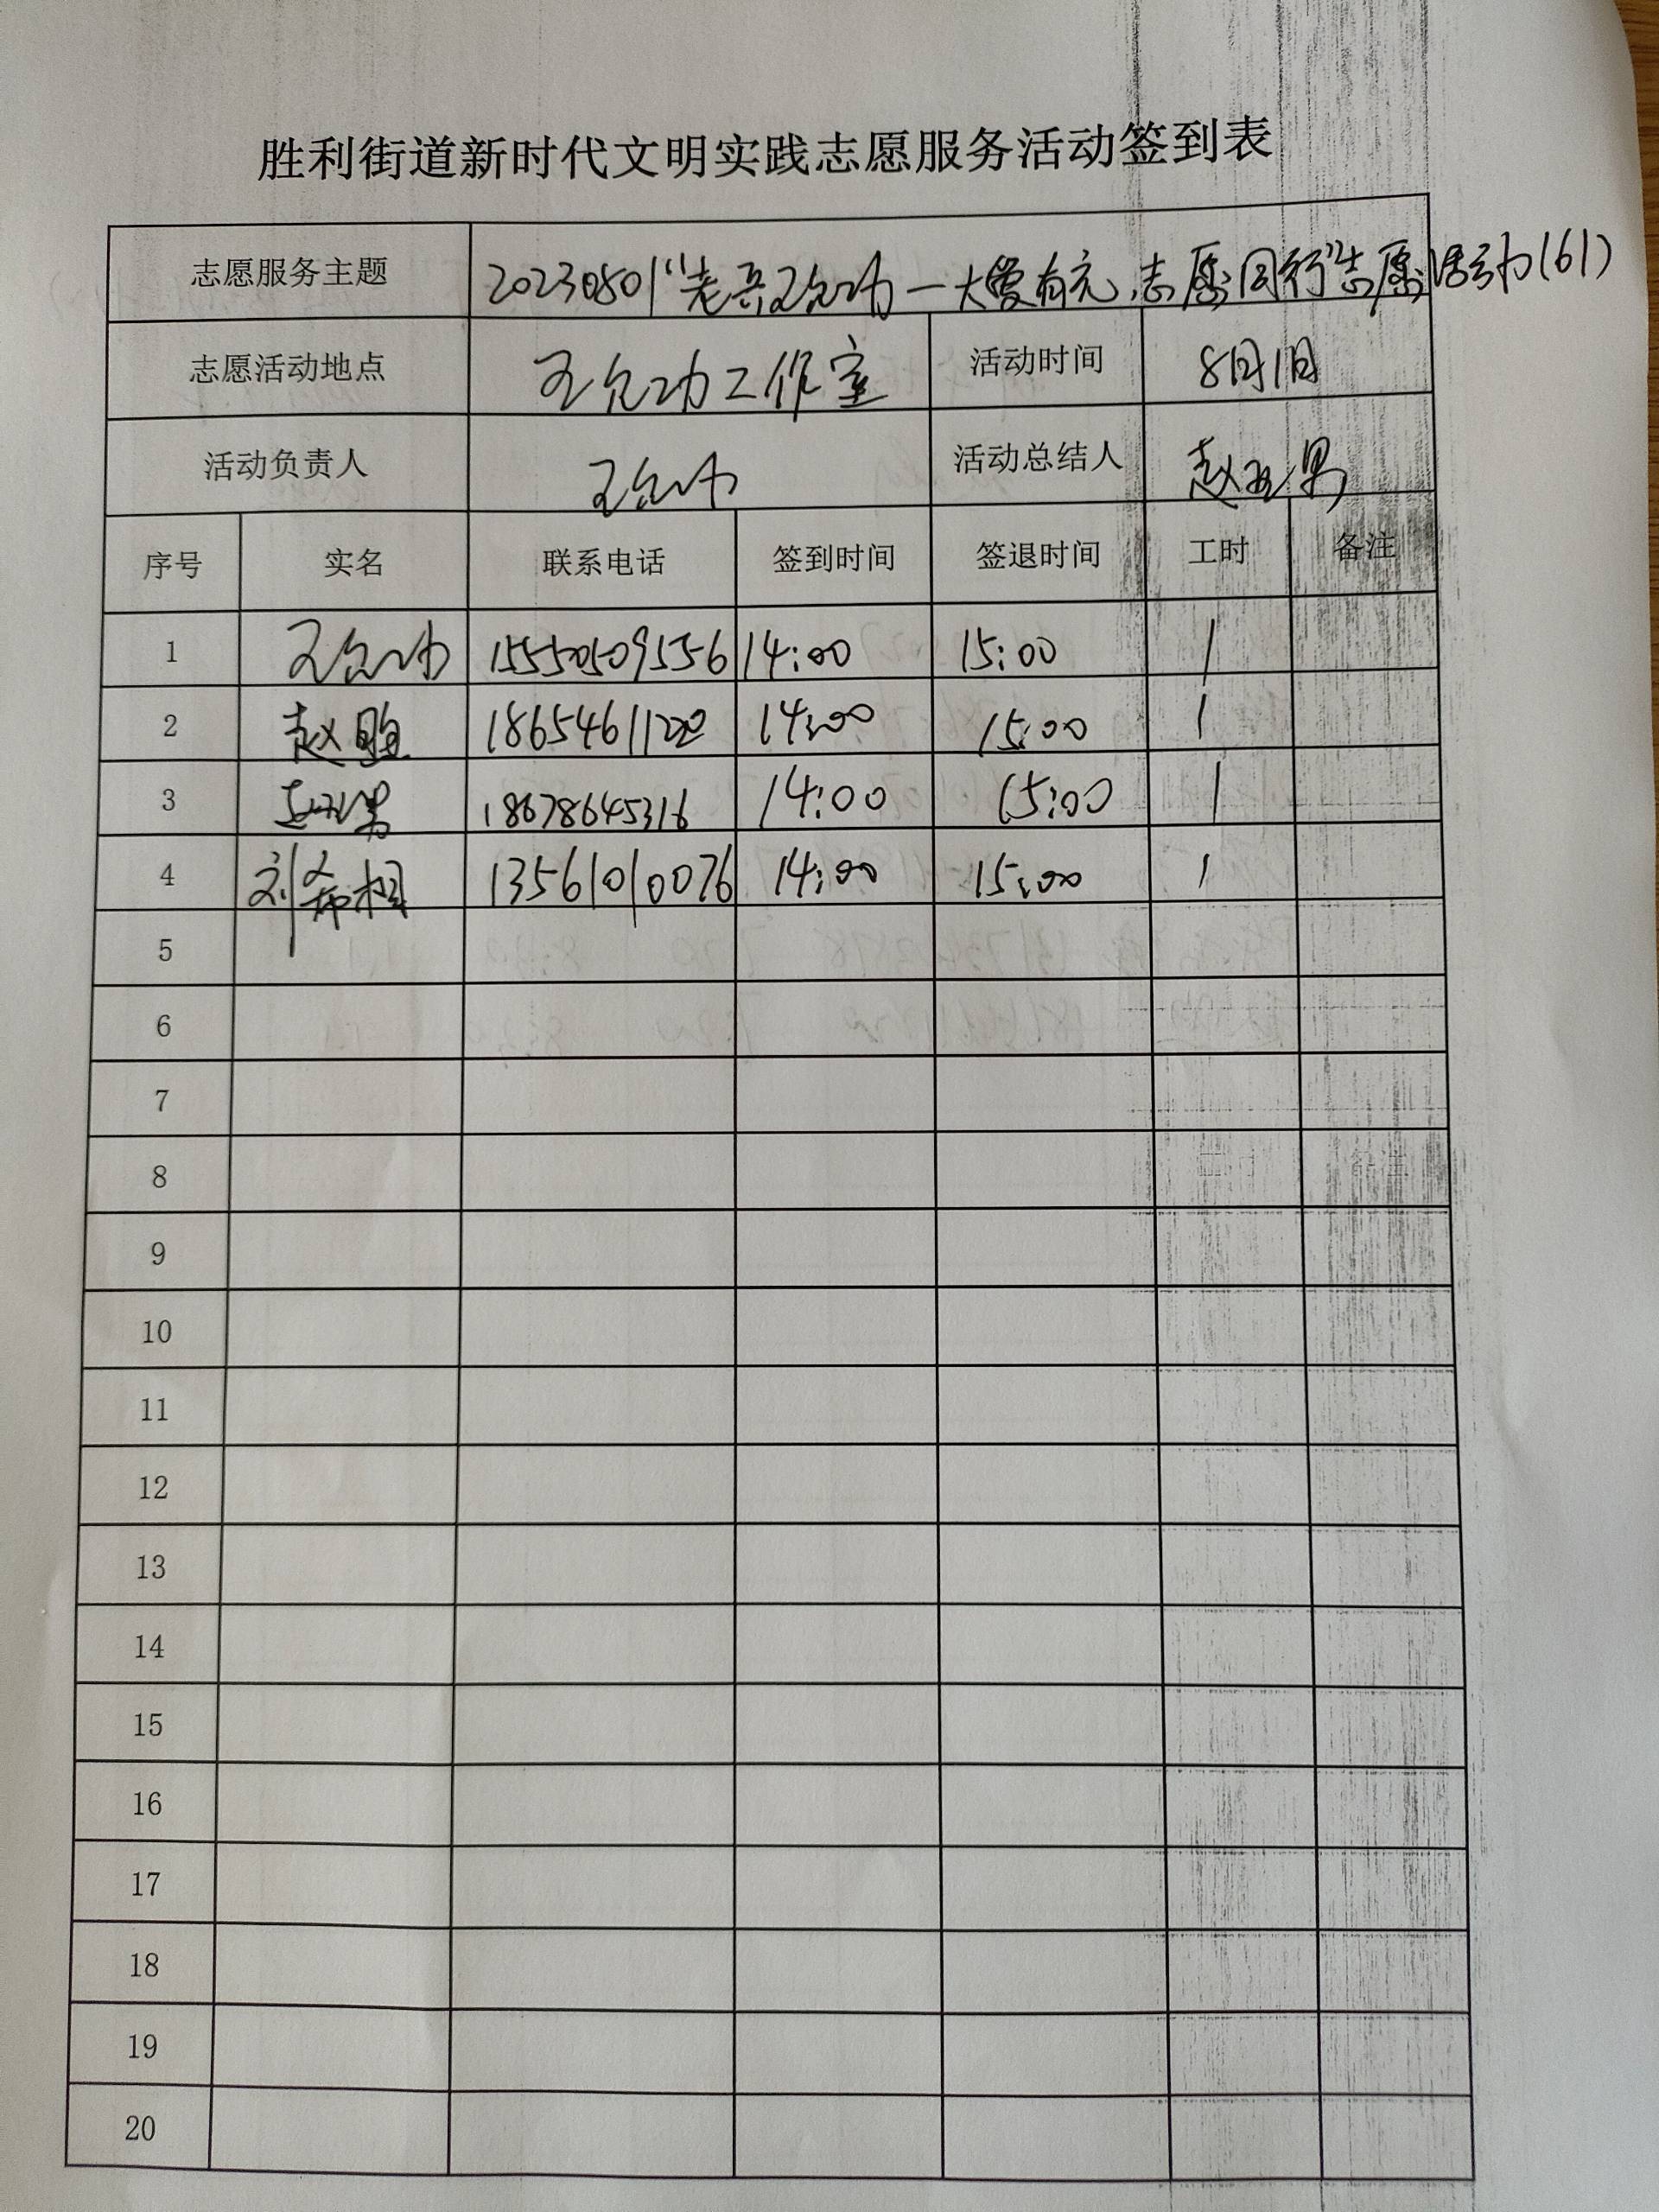 胜利街道新时代文明实践志愿服务活动签到表
志愿服务主题 20230801"老兵王允功—大爱有充,志愿同行"志愿活动(61)
志愿活动地点 王允功工作室 活动时间 8月1日
活动负责人 王允功 活动总结人 赵玉男
序号 实名 联系电话 签到时间 签退时间 工时 备注
1 王允功 15550509556 14:00 15:00 1
2 赵 18654611220 14:00 15:00 1
3 赵玉男 18678645316 14:00 15:00 1
4 刘希相 13561010076 14:00 15:00 1
5
6
7
8
9
10
11
12
13
14
15
16
17
18
19
20